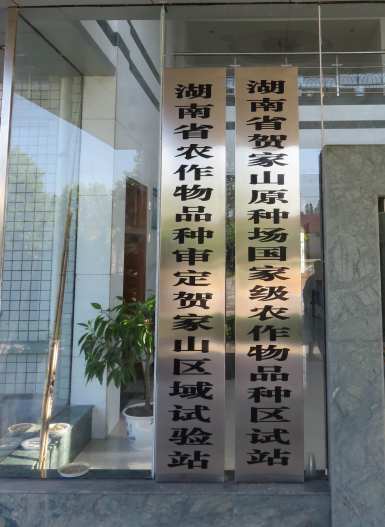 湖南省贺家山原种场国家级农作物品种区试站
湖南省农作物品种审定贺家山区域试验站